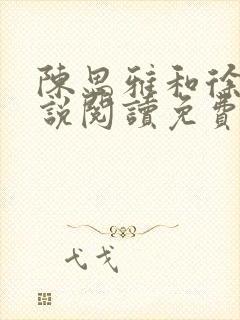 陳思雅和徐
說閱讀免費
弋戈